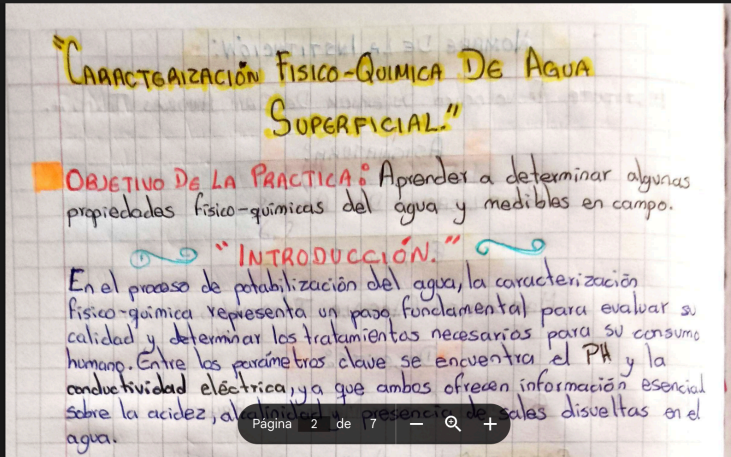 "CARACTERIZACIÓN FISICO-QUIMICA DE AGUA
SUPERFICIAL."
OBJETIVO DE LA PRACTICA: Aprender a determinar algunas
propiedades físico-químicas del agua y medibles en campo.
"INTRODUCCIÓN."
En el proceso de potabilización del agua, la caracterización
físico-química representa un paso fundamental para evaluar su
calidad y determinar los tratamientos necesarios para su consumo
humano. Entre los parámetros clave se encuentra el PH y la
conductividad eléctrica, ya que ambos ofrecen información esencial
sobre la acidez, alcalinidad y presencia de sales disueltas en el
agua.
Página 2 de 7